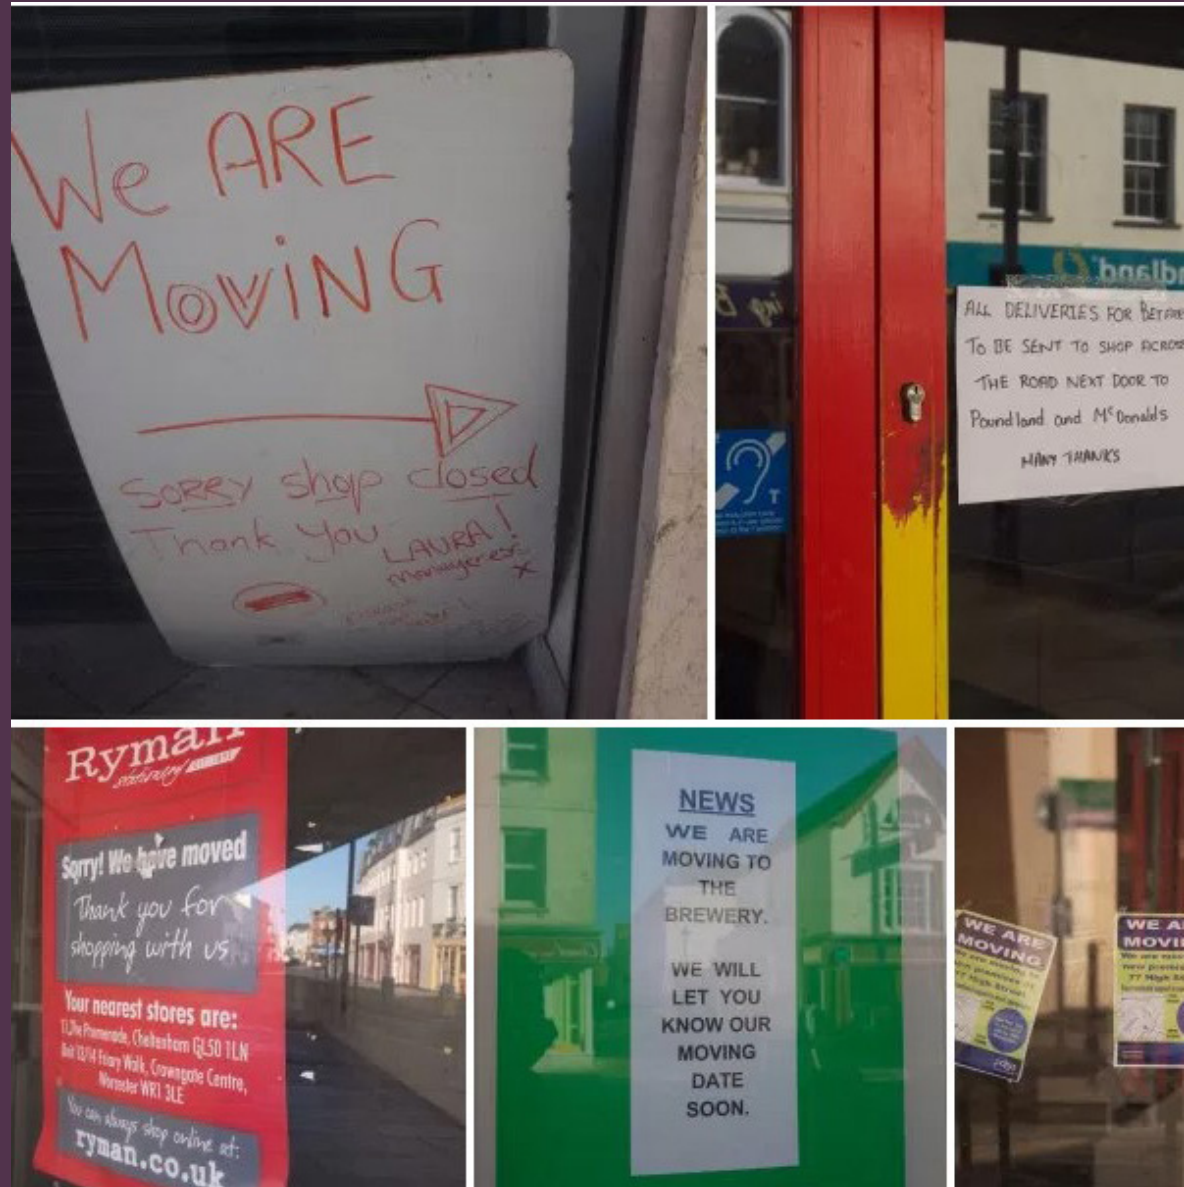 We ARE
MOViNG
SORRY shop closed
Thank You
LAURA!
manageress
x
ndland
ALL DELIVERIES FOR BETFRE
TO BE SENT TO SHOP ACROSS
THE ROAD NEXT DOOR TO
Poundland and McDonalds
MANY THANKS
T
Ryman
stationery
Sorry! We have moved
Thank you for
shopping with us
Your nearest stores are:
11, The Promenade, Cheltenham GL50 1LN
Unit 13/14 Friary Walk, Crowngate Centre,
Worcester WR1 3LE
You can always shop online at:
ryman.co.uk
NEWS
WE ARE
MOVING TO
THE
BREWERY.
WE WILL
LET YOU
KNOW OUR
MOVING
DATE
SOON.
WE ARE
MOVING
We are moving to
new premises at
77 High Street
WE A
MOVI
We are movi
new premise
77 High S